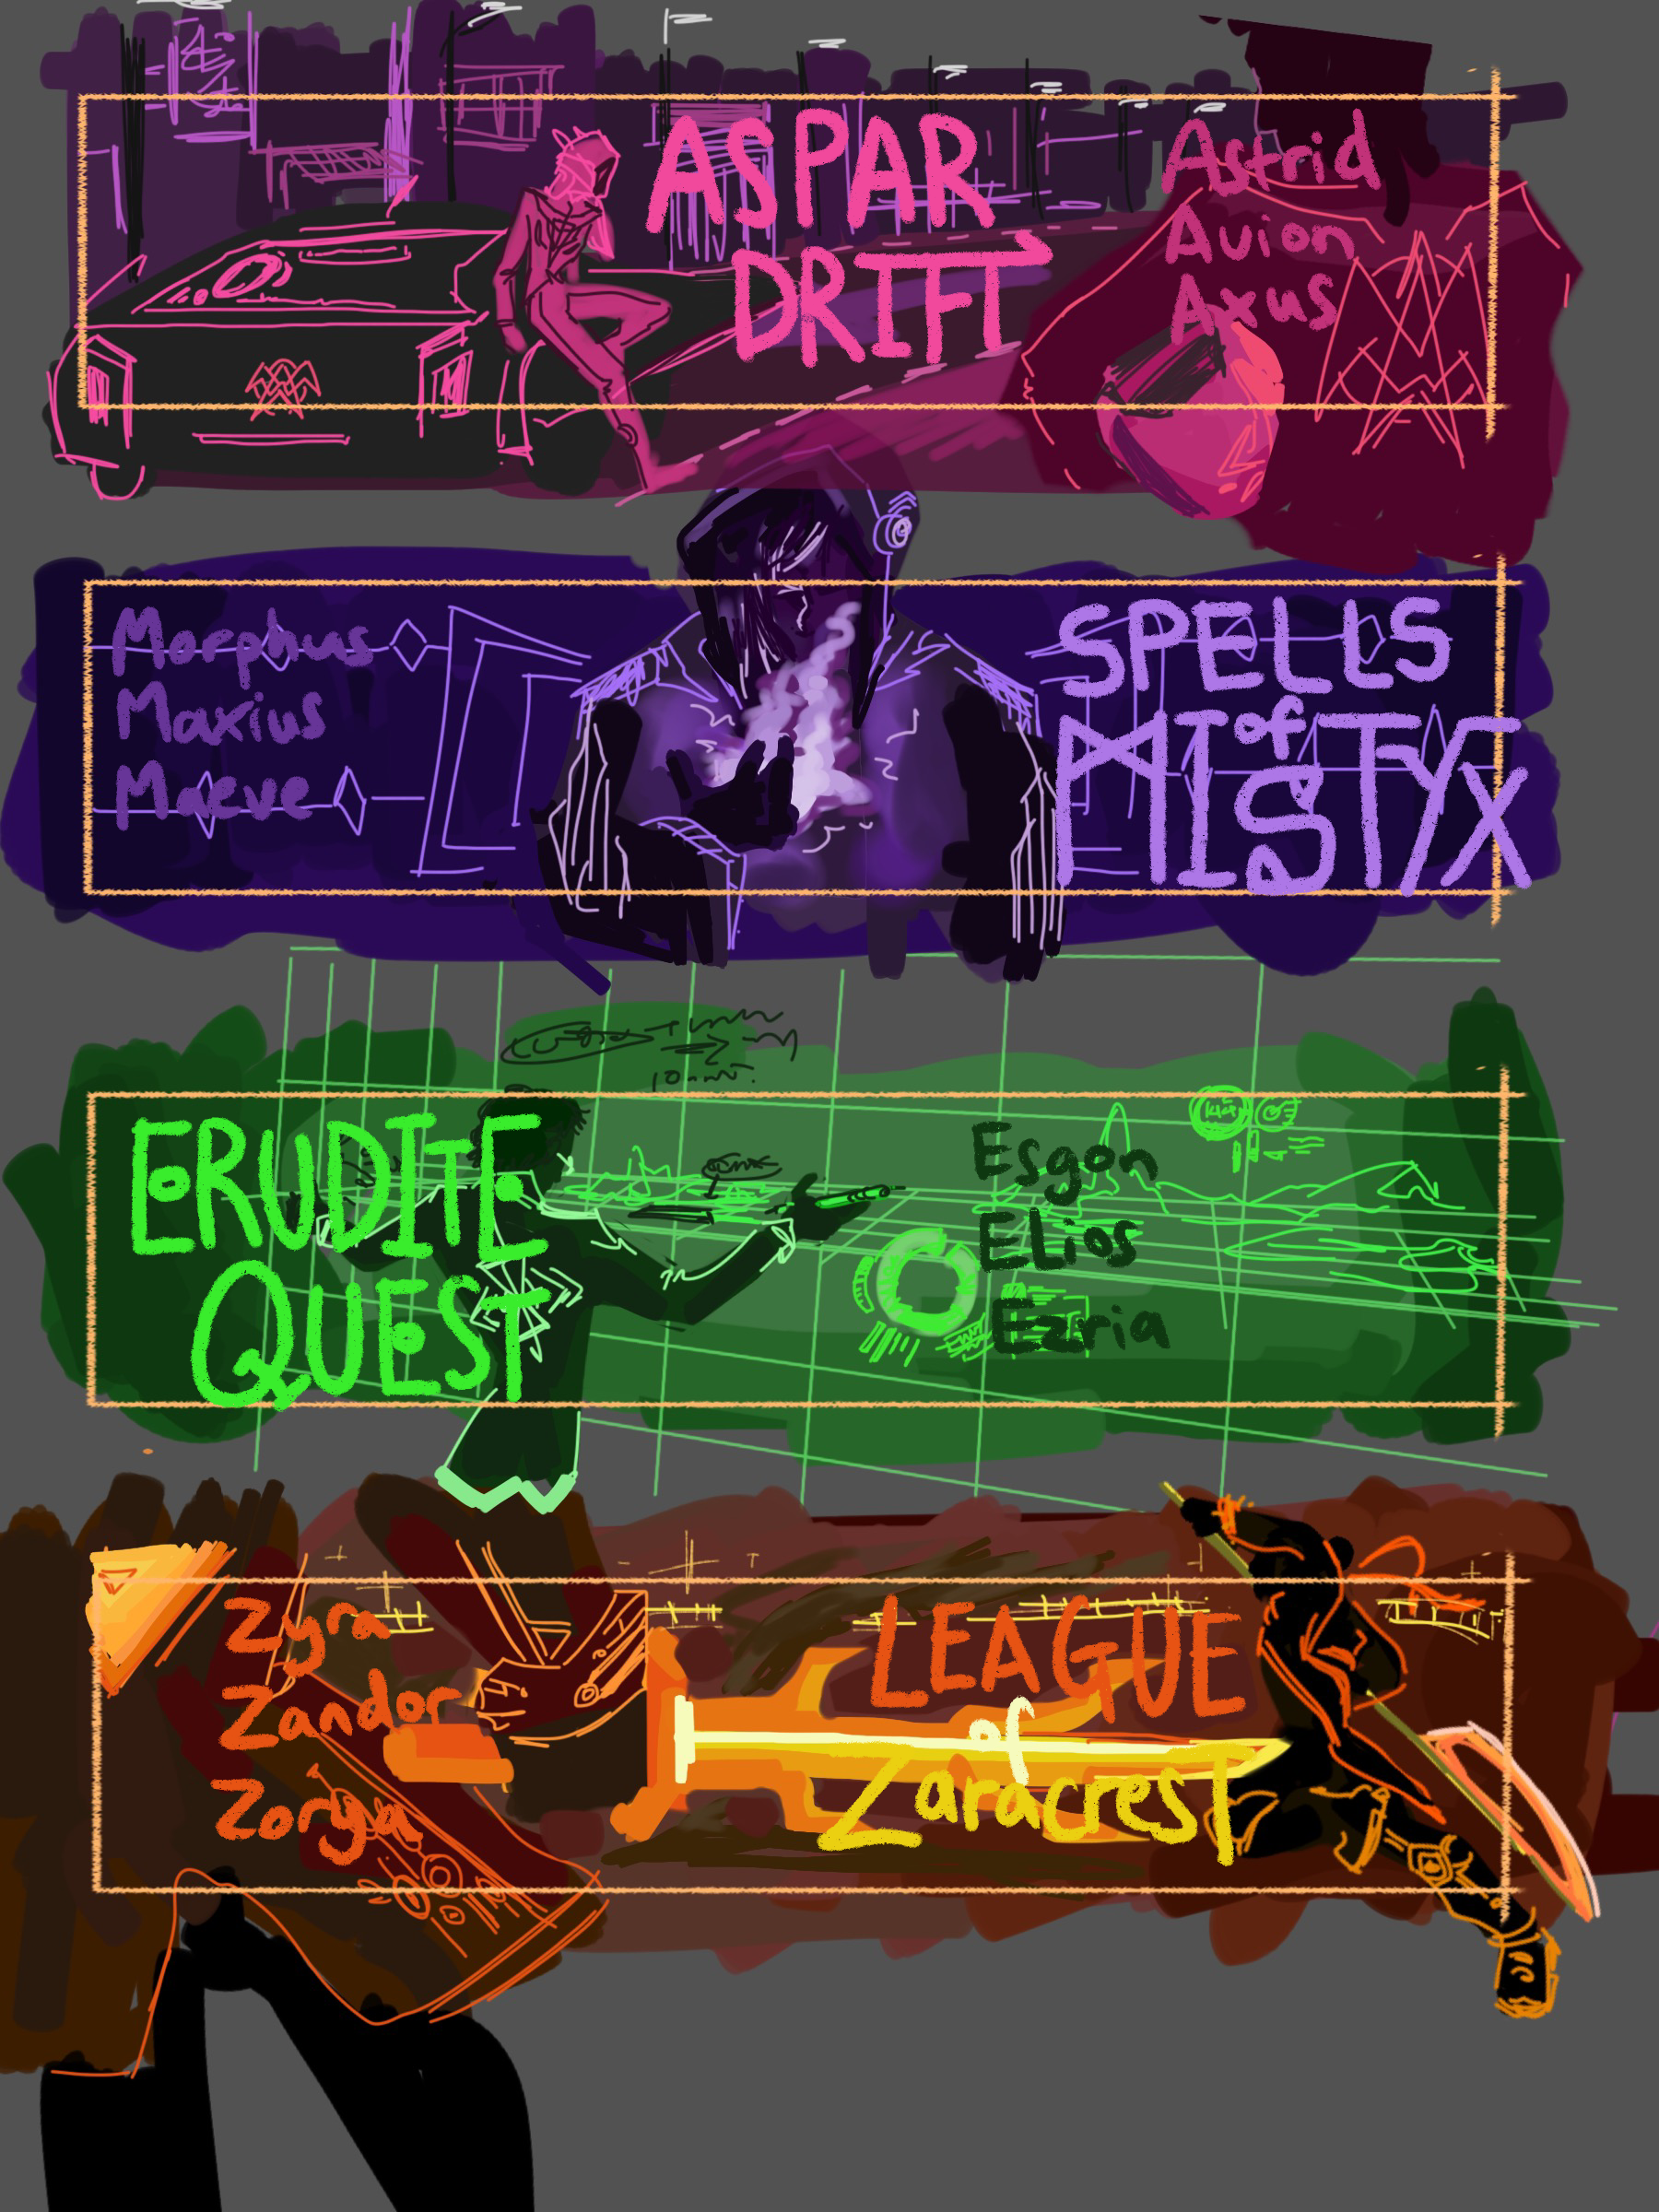 ASPAR
DRIFT
Astrid
Avion
Axus
Morphus
Maxius
Maeve
SPELLS
of
MISTYX
ERUDITE
QUEST
Esgon
ELios
Ezria
Zyra
Zandor
Zorga
LEAGUE
of
Zaracrest